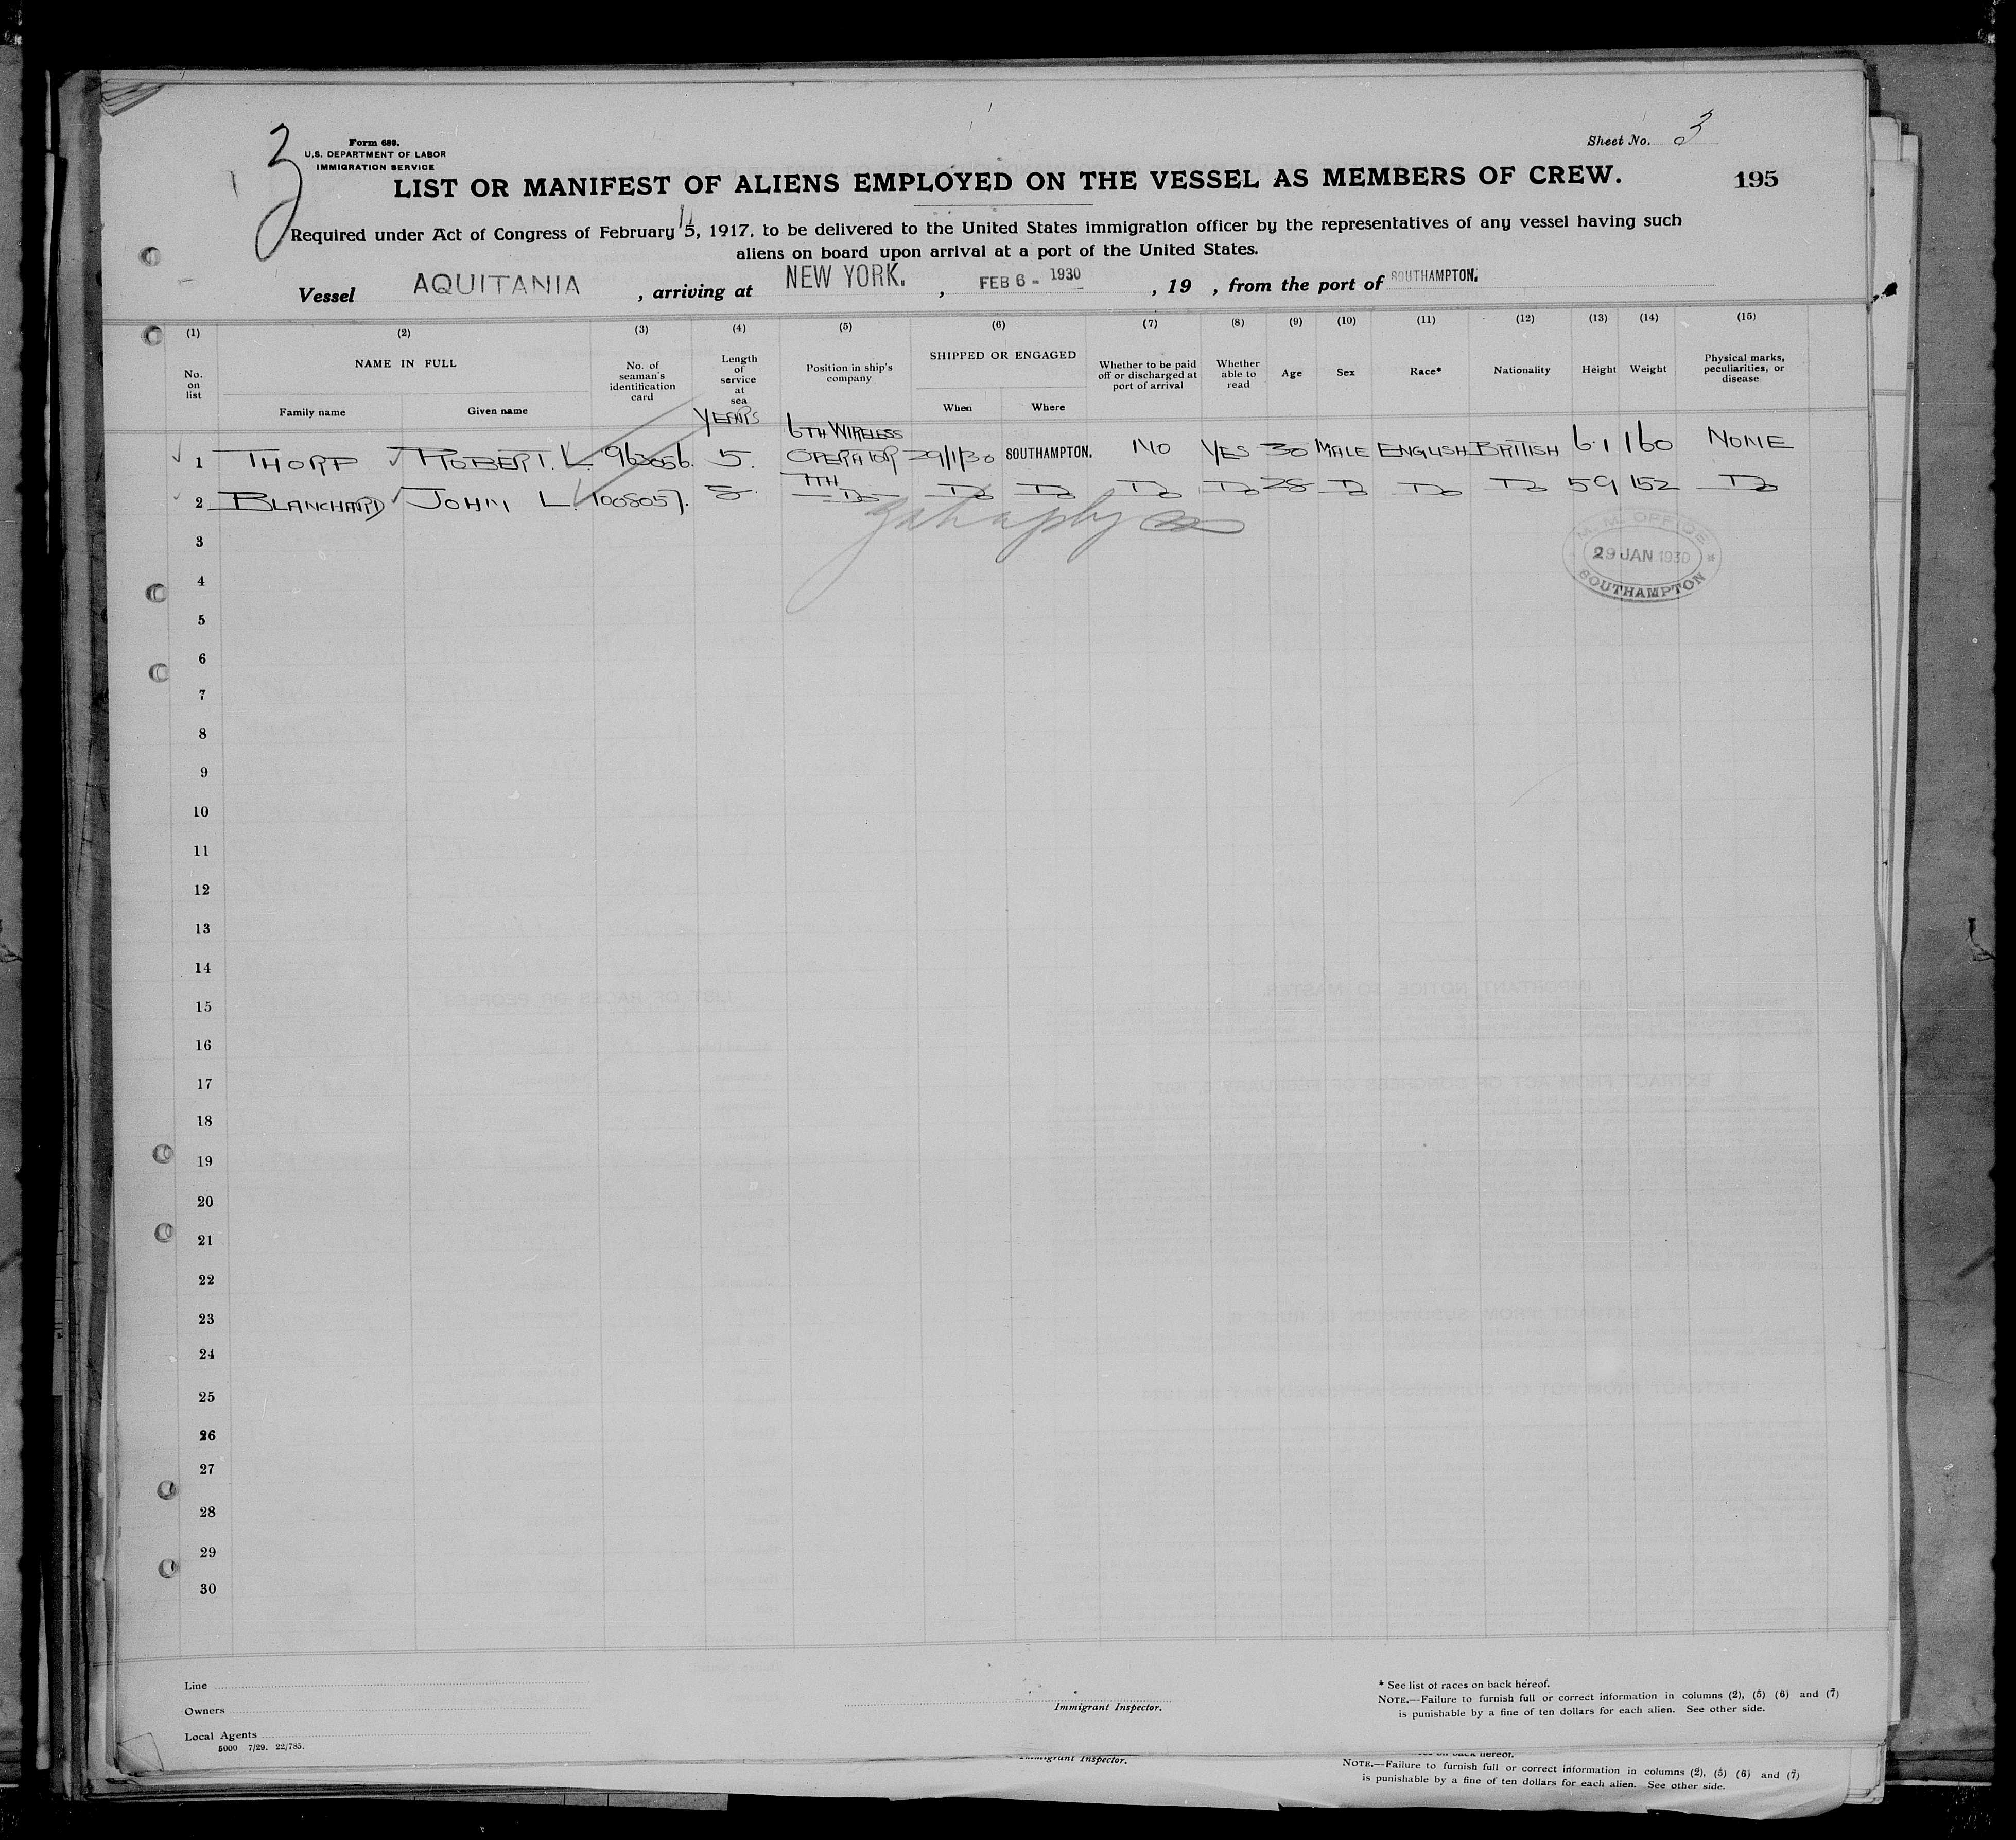 3
Form 680.
U.S. DEPARTMENT OF LABOR
IMMIGRATION SERVICE
Sheet No. 3
LIST OR MANIFEST OF ALIENS EMPLOYED ON THE VESSEL AS MEMBERS OF CREW.
195
Required under Act of Congress of February 5, 1917, to be delivered to the United States immigration officer by the representatives of any vessel having such
aliens on board upon arrival at a port of the United States.
Vessel AQUITANIA , arriving at NEW YORK. , FEB 6 - 1930 , 19 , from the port of SOUTHAMPTON.
(1) (2) (3) (4) (5) (6) (7) (8) (9) (10) (11) (12) (13) (14) (15)
No. on list
NAME IN FULL
Family name Given name
No. of seaman's identification card
Length of service at sea
YEARS
Position in ship's company
SHIPPED OR ENGAGED
When Where
Whether to be paid off or discharged at port of arrival
Whether able to read
Age Sex Race* Nationality Height Weight
Physical marks, peculiarities, or disease
1 THORP ROBERT. L. 963056. 5. 6TH WIRELESS OPERATOR 29/1/30 SOUTHAMPTON. NO YES 30 MALE ENGLISH BRITISH 6.1 160 NONE
2 BLANCHARD JOHN L. 1008057. 5. 7TH Do Do Do Do Do 28 Do Do Do 59 152 Do
M.M. OFFICE
29 JAN 1930
SOUTHAMPTON
3
4
5
6
7
8
9
10
11
12
13
14
15
16
17
18
19
20
21
22
23
24
25
26
27
28
29
30
Line
Owners
Local Agents
5000 7/29. 22/785.
Immigrant Inspector.
* See list of races on back hereof.
NOTE.—Failure to furnish full or correct information in columns (2), (5) (6) and (7)
is punishable by a fine of ten dollars for each alien. See other side.
Immigrant Inspector.
on back hereof.
NOTE.—Failure to furnish full or correct information in columns (2), (5) (6) and (7)
is punishable by a fine of ten dollars for each alien. See other side.